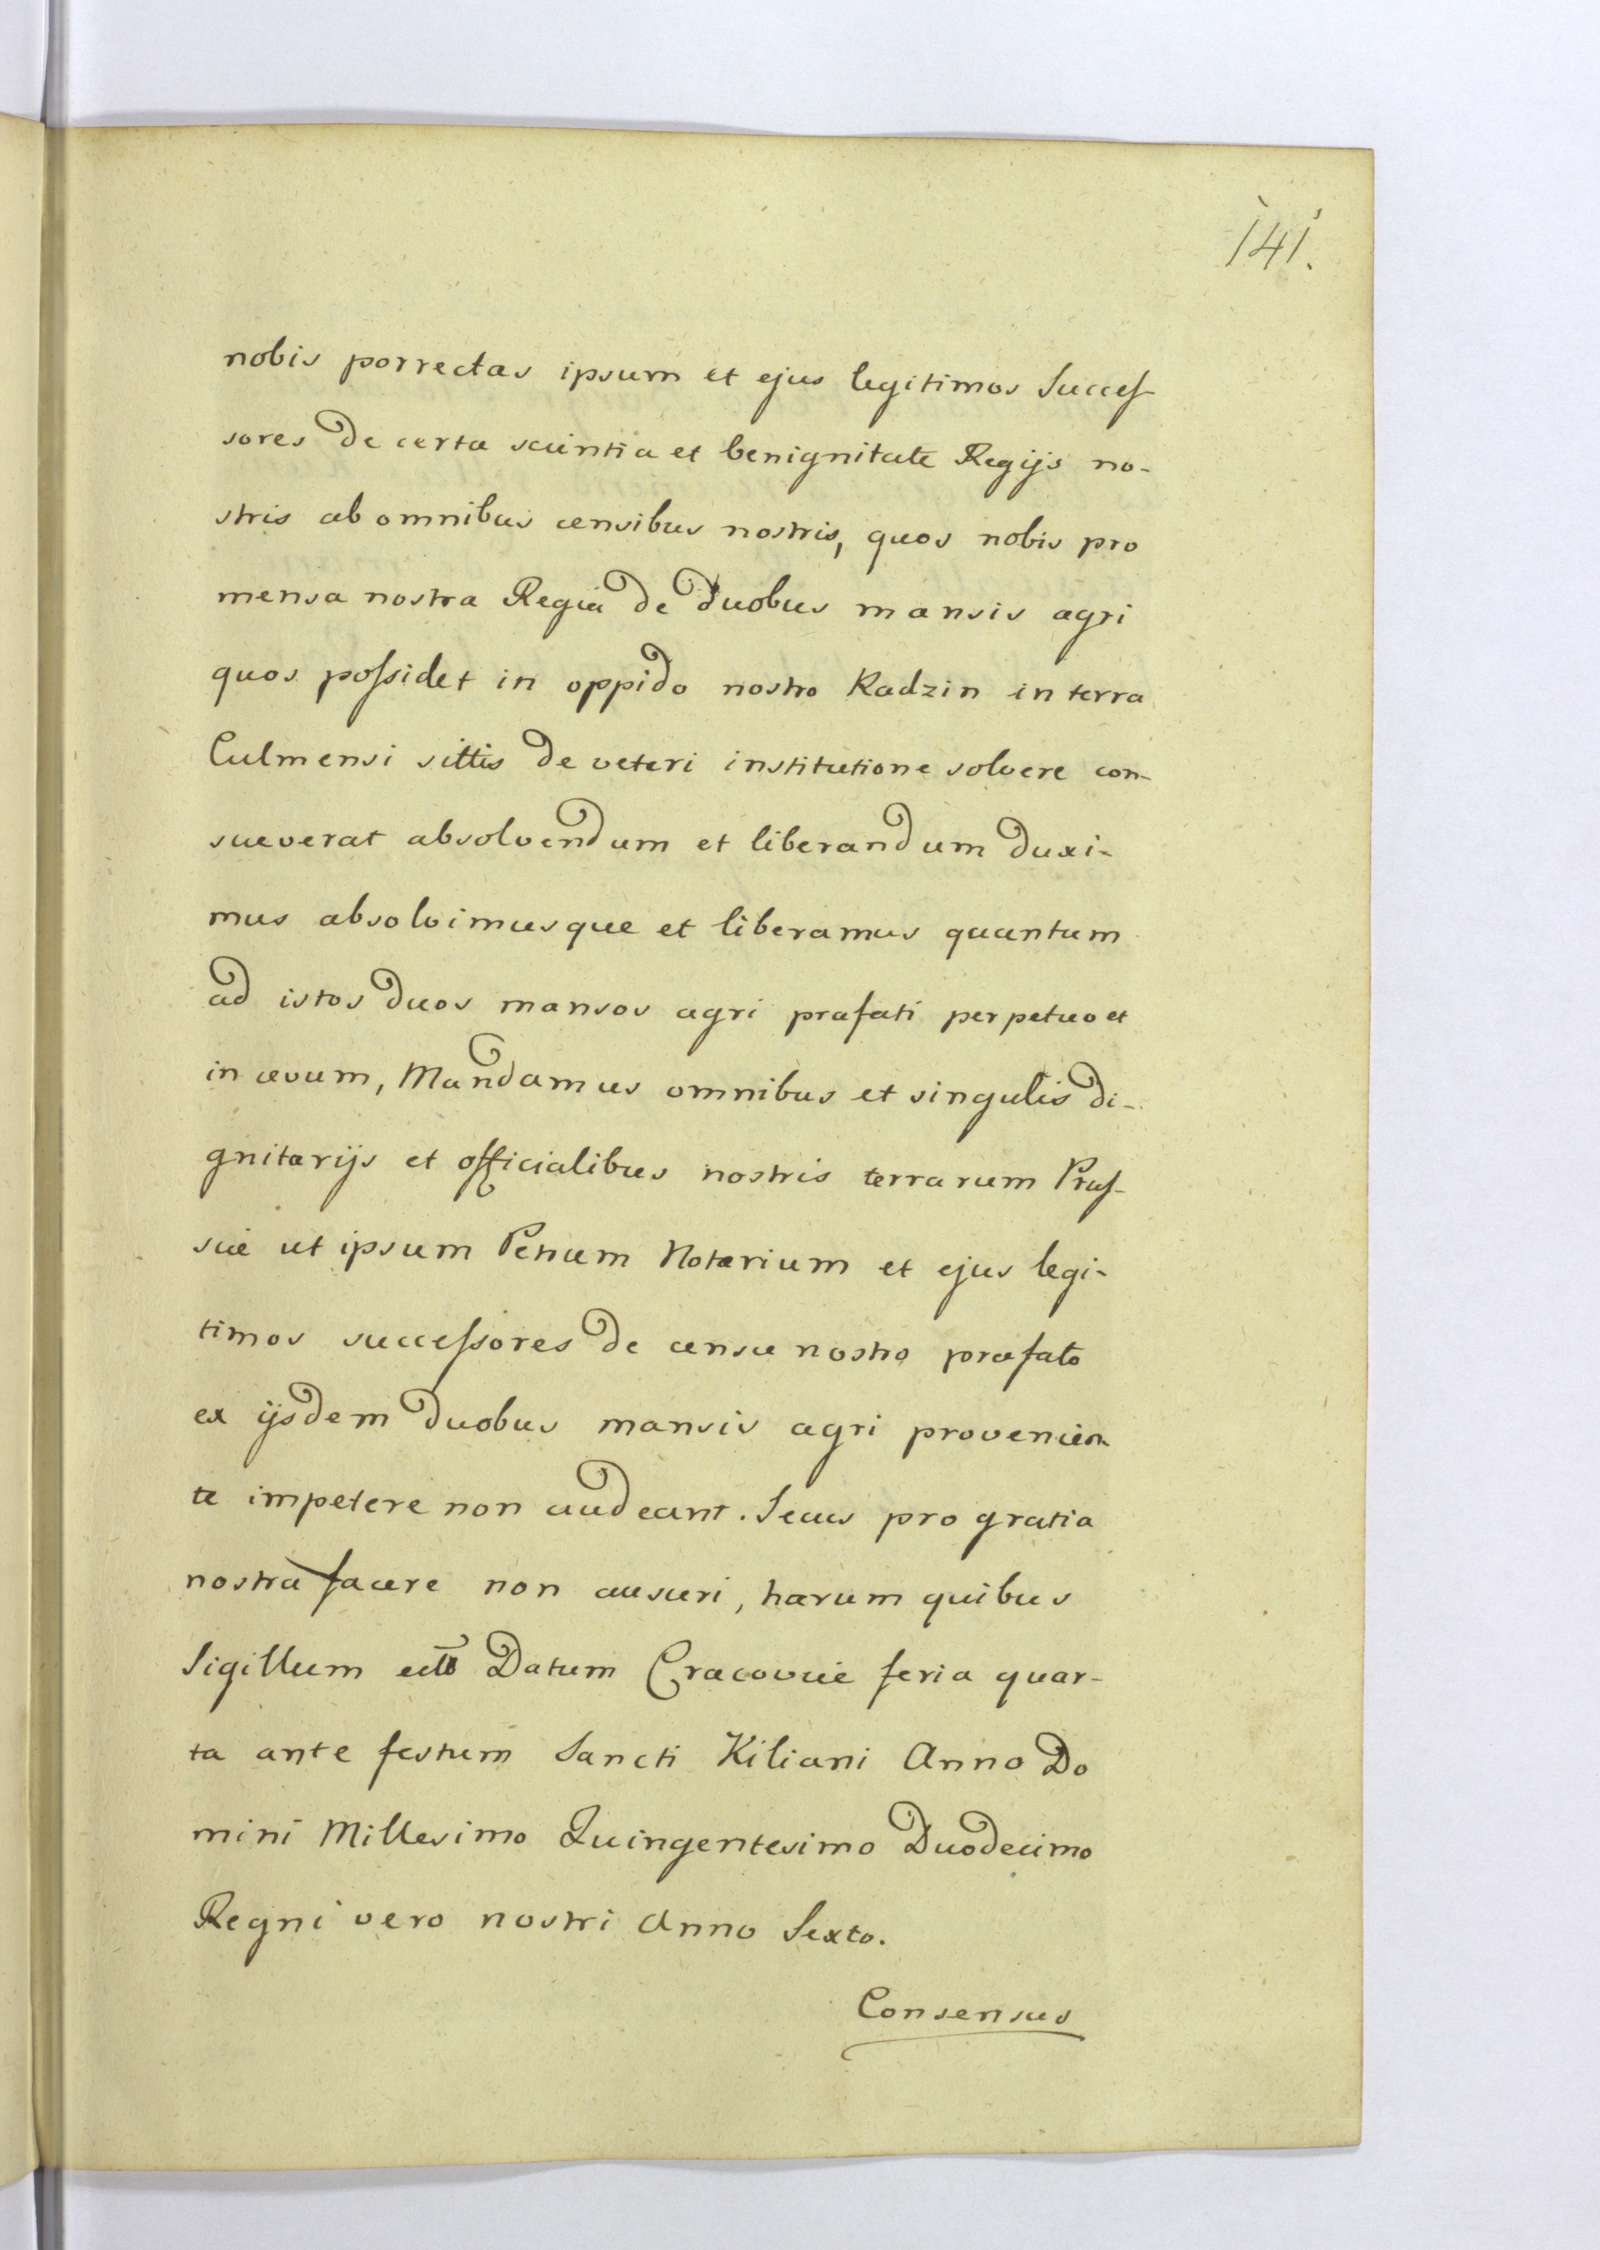 141.
nobis porrectas ipsum et ejus legitimos Succes-
sores de certa scientia et benignitate Regijs no-
stris ab omnibus censibus nostris, quos nobis pro
mensa nostra Regia de duobus mansis agri
quos possidet in oppido nostro Radzin in terra
Culmensi sittis de veteri institutione solvere con-
sueverat absolvendum et liberandum duxi-
mus absolvimusque et liberamus quantum
ad istos duos mansos agri præfati perpetuo et
in ævum, Mandamus omnibus et singulis di-
gnitarijs et officialibus nostris terrarum Prus-
siæ ut ipsum Petrum Notarium et ejus legi-
timos successores de censu nostro præfato
ex ijsdem duobus mansis agri provenien
te impetere non audeant. Secus pro gratia
nostra facere non ausuri, harum quibus
Sigillum Datum Cracoviæ feria quar-
ta ante festum Sancti Kiliani Anno Do
mini Millesimo Quingentesimo Duodecimo
Regni vero nostri Anno Sexto.
Consensus